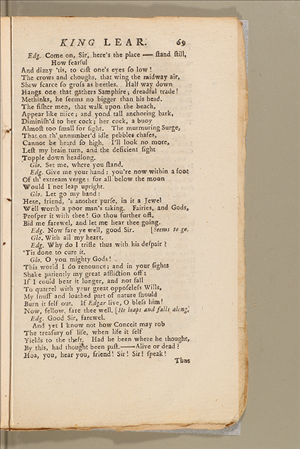 KING LEAR. 69
Edg. Come on, Sir, here's the place — stand still,
How fearful
And dizzy 'tis, to cast one's eyes so low!
The crows and choughs, that wing the midway air,
Shew scarce so gross as beetles. Half way down
Hangs one that gathers Samphire; dreadful trade!
Methinks, he seems no bigger than his head.
The fisher men, that walk upon the beach,
Appear like mice; and yond tall anchoring bark,
Diminish'd to her cock; her cock, a buoy
Almost too small for sight. The murmuring Surge,
That on th' unnumber'd idle pebbles chafes,
Cannot be heard so high. I'll look no more,
Lest my brain turn, and the deficient sight
Topple down headlong.
Glo. Set me, where you stand.
Edg. Give me your hand: you're now within a foot
Of th' extream verge: for all below the moon
Would I not leap upright.
Glo. Let go my hand:
Here, friend, 's another purse, in it a Jewel
Well worth a poor man's taking. Fairies, and Gods,
Prosper it with thee! Go thou further off,
Bid me farewel, and let me hear thee going.
Edg. Now fare ye well, good Sir. [Seems to go.
Glo. With all my heart.
Edg. Why do I trifle thus with his despair?
'Tis done to cure it.
Glo. O you mighty Gods!
This world I do renounce; and in your sights
Shake patiently my great affliction off:
If I could bear it longer, and not fall
To quarrel with your great opposeless Wills,
My snuff and loathed part of nature should
Burn it self out. If Edgar live, O bless him!
Now, fellow, fare thee well. [He leaps and falls along,
Edg. Good Sir, farewel.
And yet I know not how Conceit may rob
The treasury of life, when life it self
Yields to the theft. Had he been where he thought,
By this, had thought been past.——Alive or dead?
Hoa, you, hear you, friend! Sir! Sir! speak!
Thus